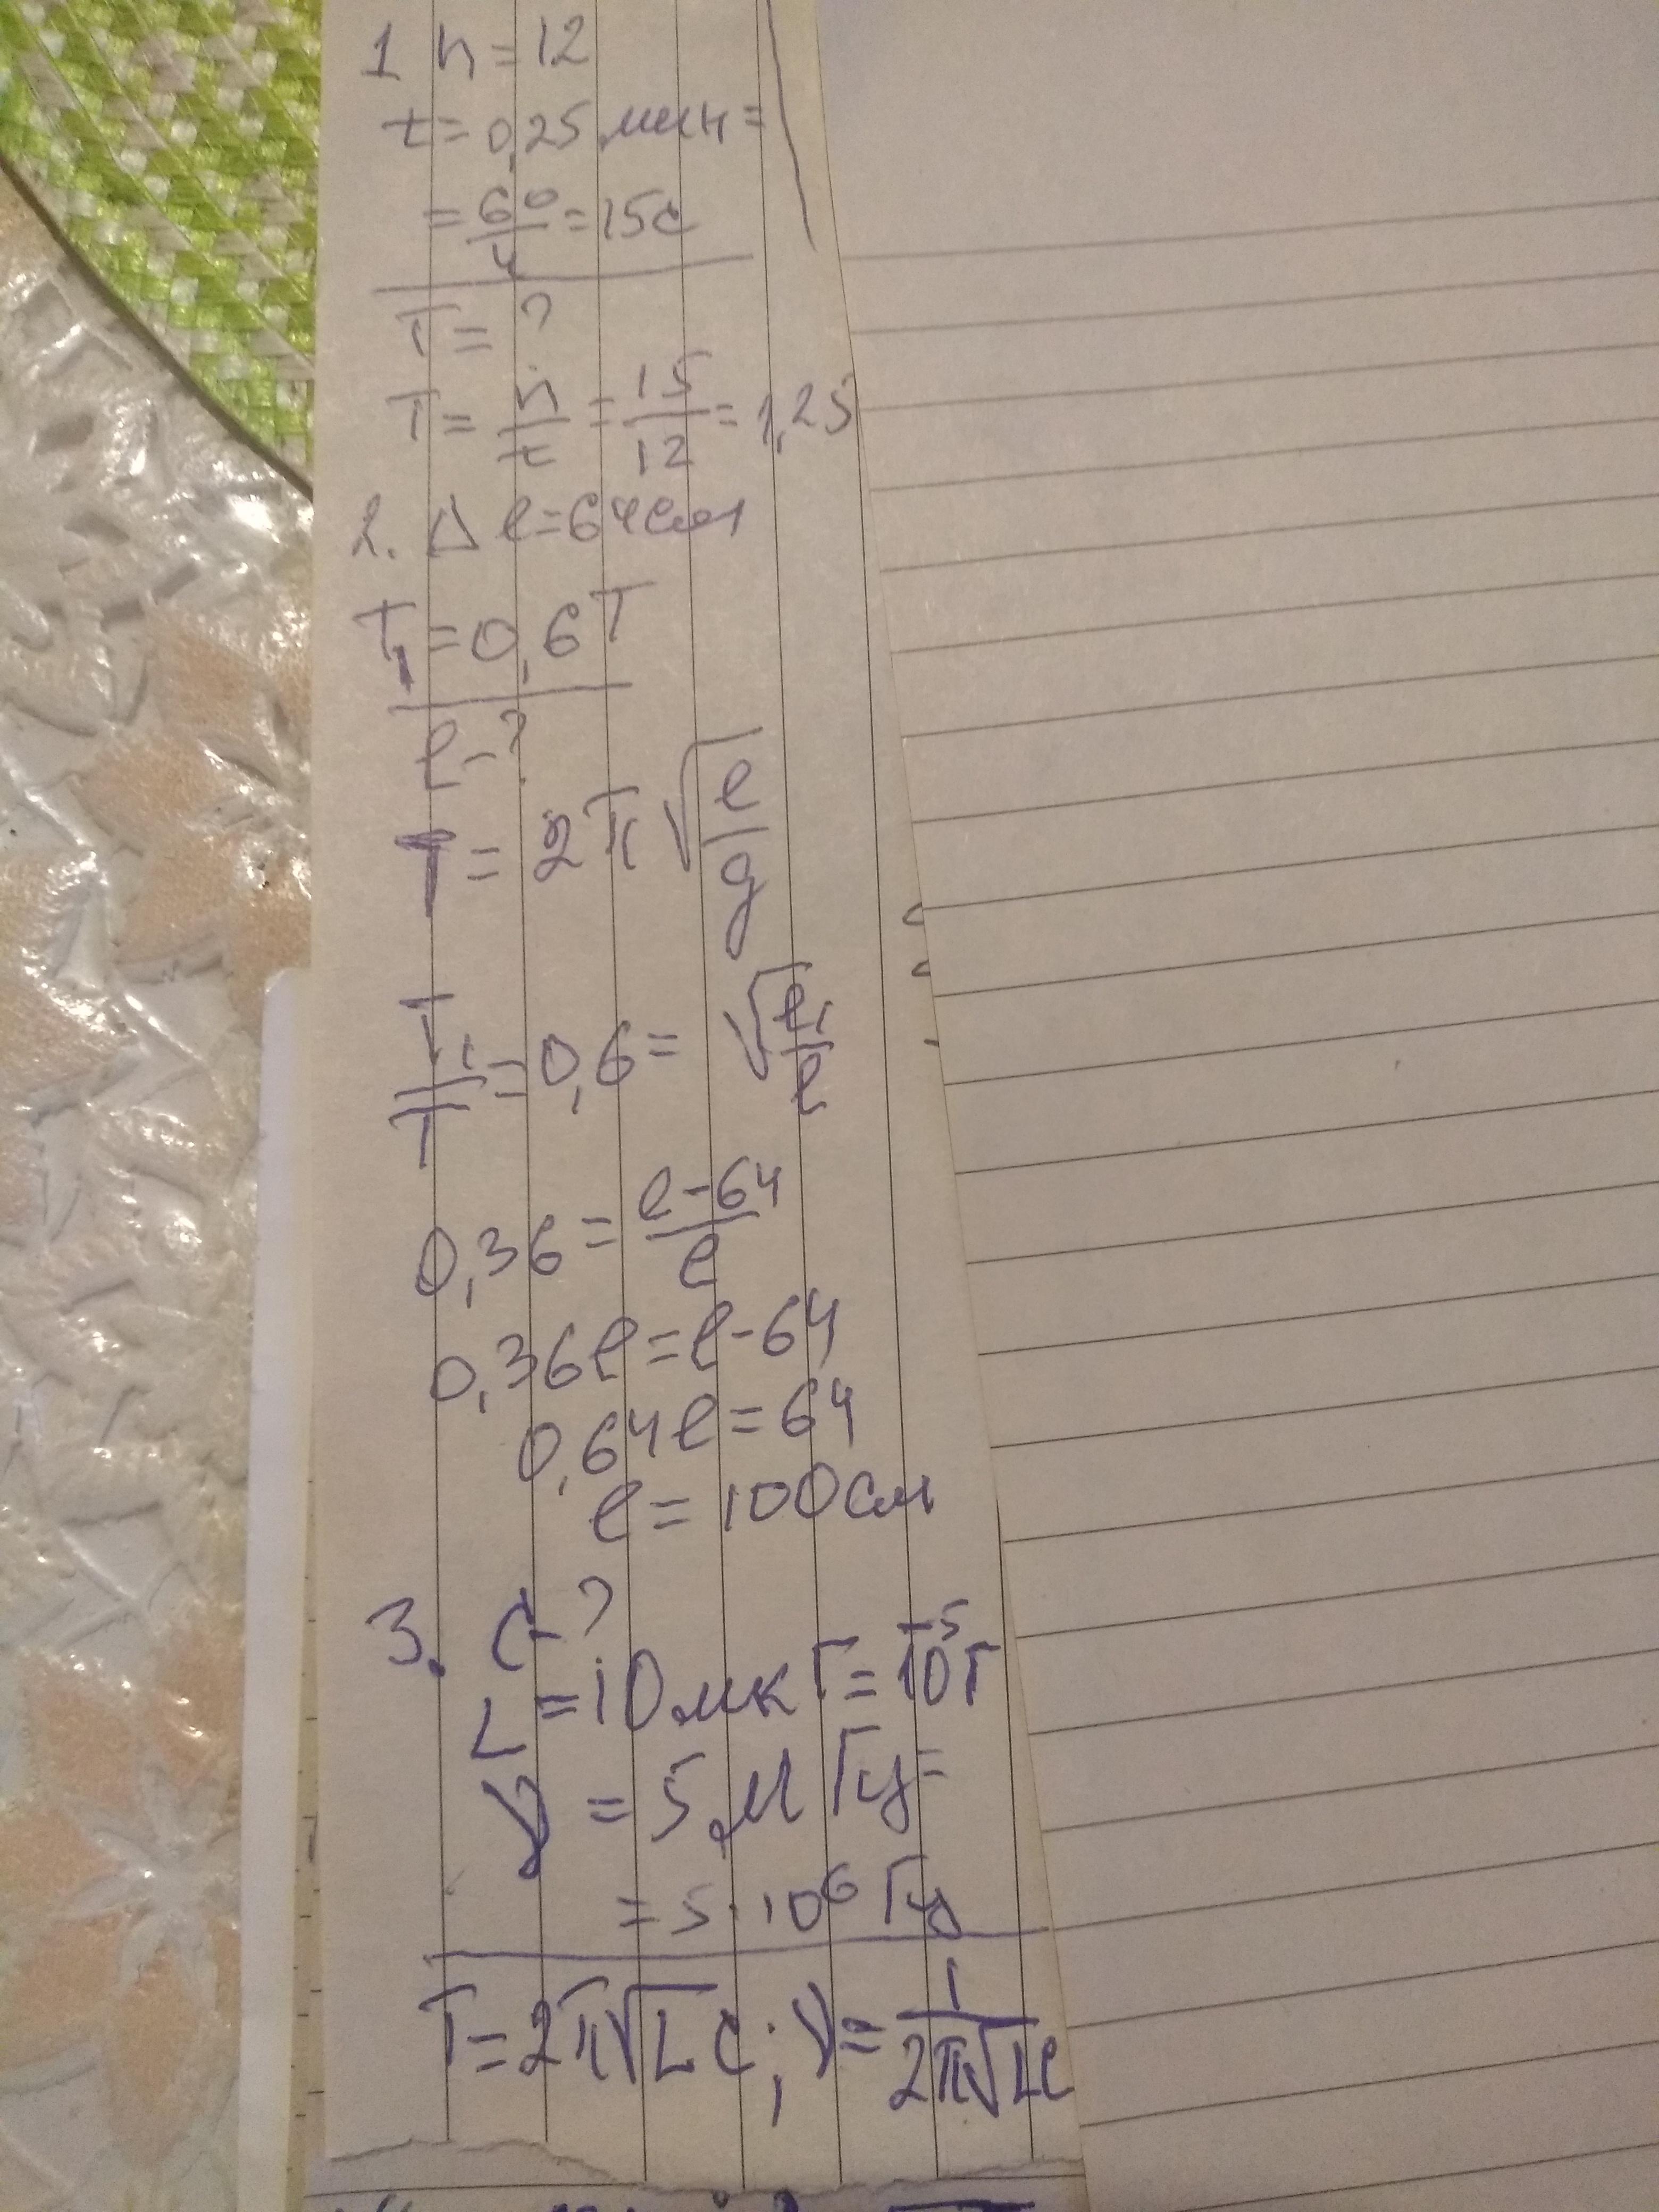 1 n = 12
t = 0,25 мин =
= 60/4 = 15с
T = ?
T = n/t = 15/12 = 1,25
2. Δ l = 64см
T₁ = 0,6T
l - ?
T = 2π √(l/g)
T₁/T = 0,6 = √(l₁/l)
0,36 = (l-64)/l
0,36l = l-64
0,64l = 64
l = 100см
3. C - ?
L = 10 мкГ = 10⁻⁵Г
ν = 5 мГц =
= 5·10⁶ Гц
T = 2π√LC; ν = 1/(2π√LC)